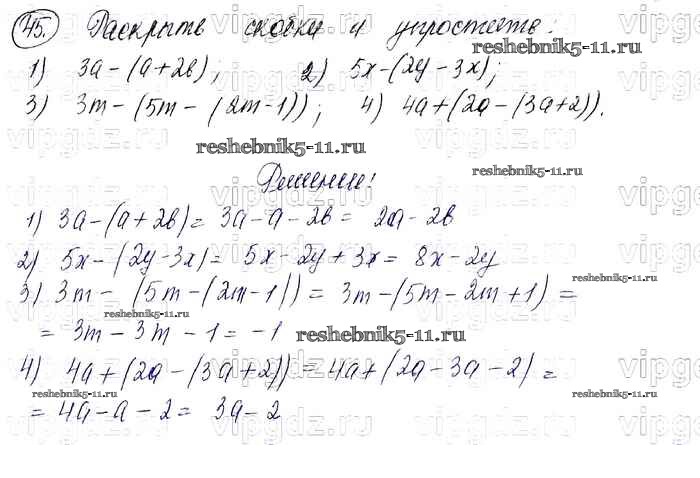 45. Раскрыть скобки и упростить:
1) 3a-(a+2в); 2) 5x-(2y-3x);
3) 3m-(5m-(2m-1)); 4) 4a+(2a-(3a+2)).
Решение!
1) 3a-(a+2в)= 3a-a-2в= 2a-2в
2) 5x-(2y-3x)= 5x-2y+3x= 8x-2y
3) 3m-(5m-(2m-1))= 3m-(5m-2m+1)=
= 3m-3m-1= -1
4) 4a+(2a-(3a+2))= 4a+(2a-3a-2)=
= 4a-a-2= 3a-2
reshebnik5-11.ru
reshebnik5-11.ru
reshebnik5-11.ru
reshebnik5-11.ru
reshebnik5-11.ru
reshebnik5-11.ru
reshebnik5-11.ru
reshebnik5-11.ru
vipgdz.ru